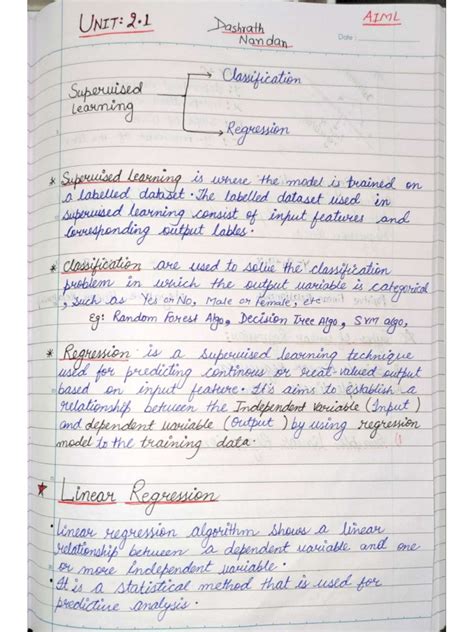 UNIT: 2.1
Dashrath
Nandan
AIML
Date:
Supervised
Learning
Classification
Regression
* Supervised Learning is where the model is trained on
a labelled dataset. The labelled dataset used in
supervised learning consist of input features and
Corresponding output lables.
* Classification are used to solve the classification
problem in which the output variable is categorical
, Such as Yes or No, Male or Female, etc
Eg: Random Forest Algo, Decision Tree Algo, SVM algo.
* Regression is a supervised learning technique
used for predicting continous or real-valued output
based on input feature. It's aims to establish a
relationship between the Independent variable (Input)
and dependent variable (Output) by using regression
model to the training data.
* Linear Regression
• Linear regression algorithm shows a linear
relationship between a dependent variable and one
or more Independent variable.
• It is a statistical method that is used for
predictive analysis.